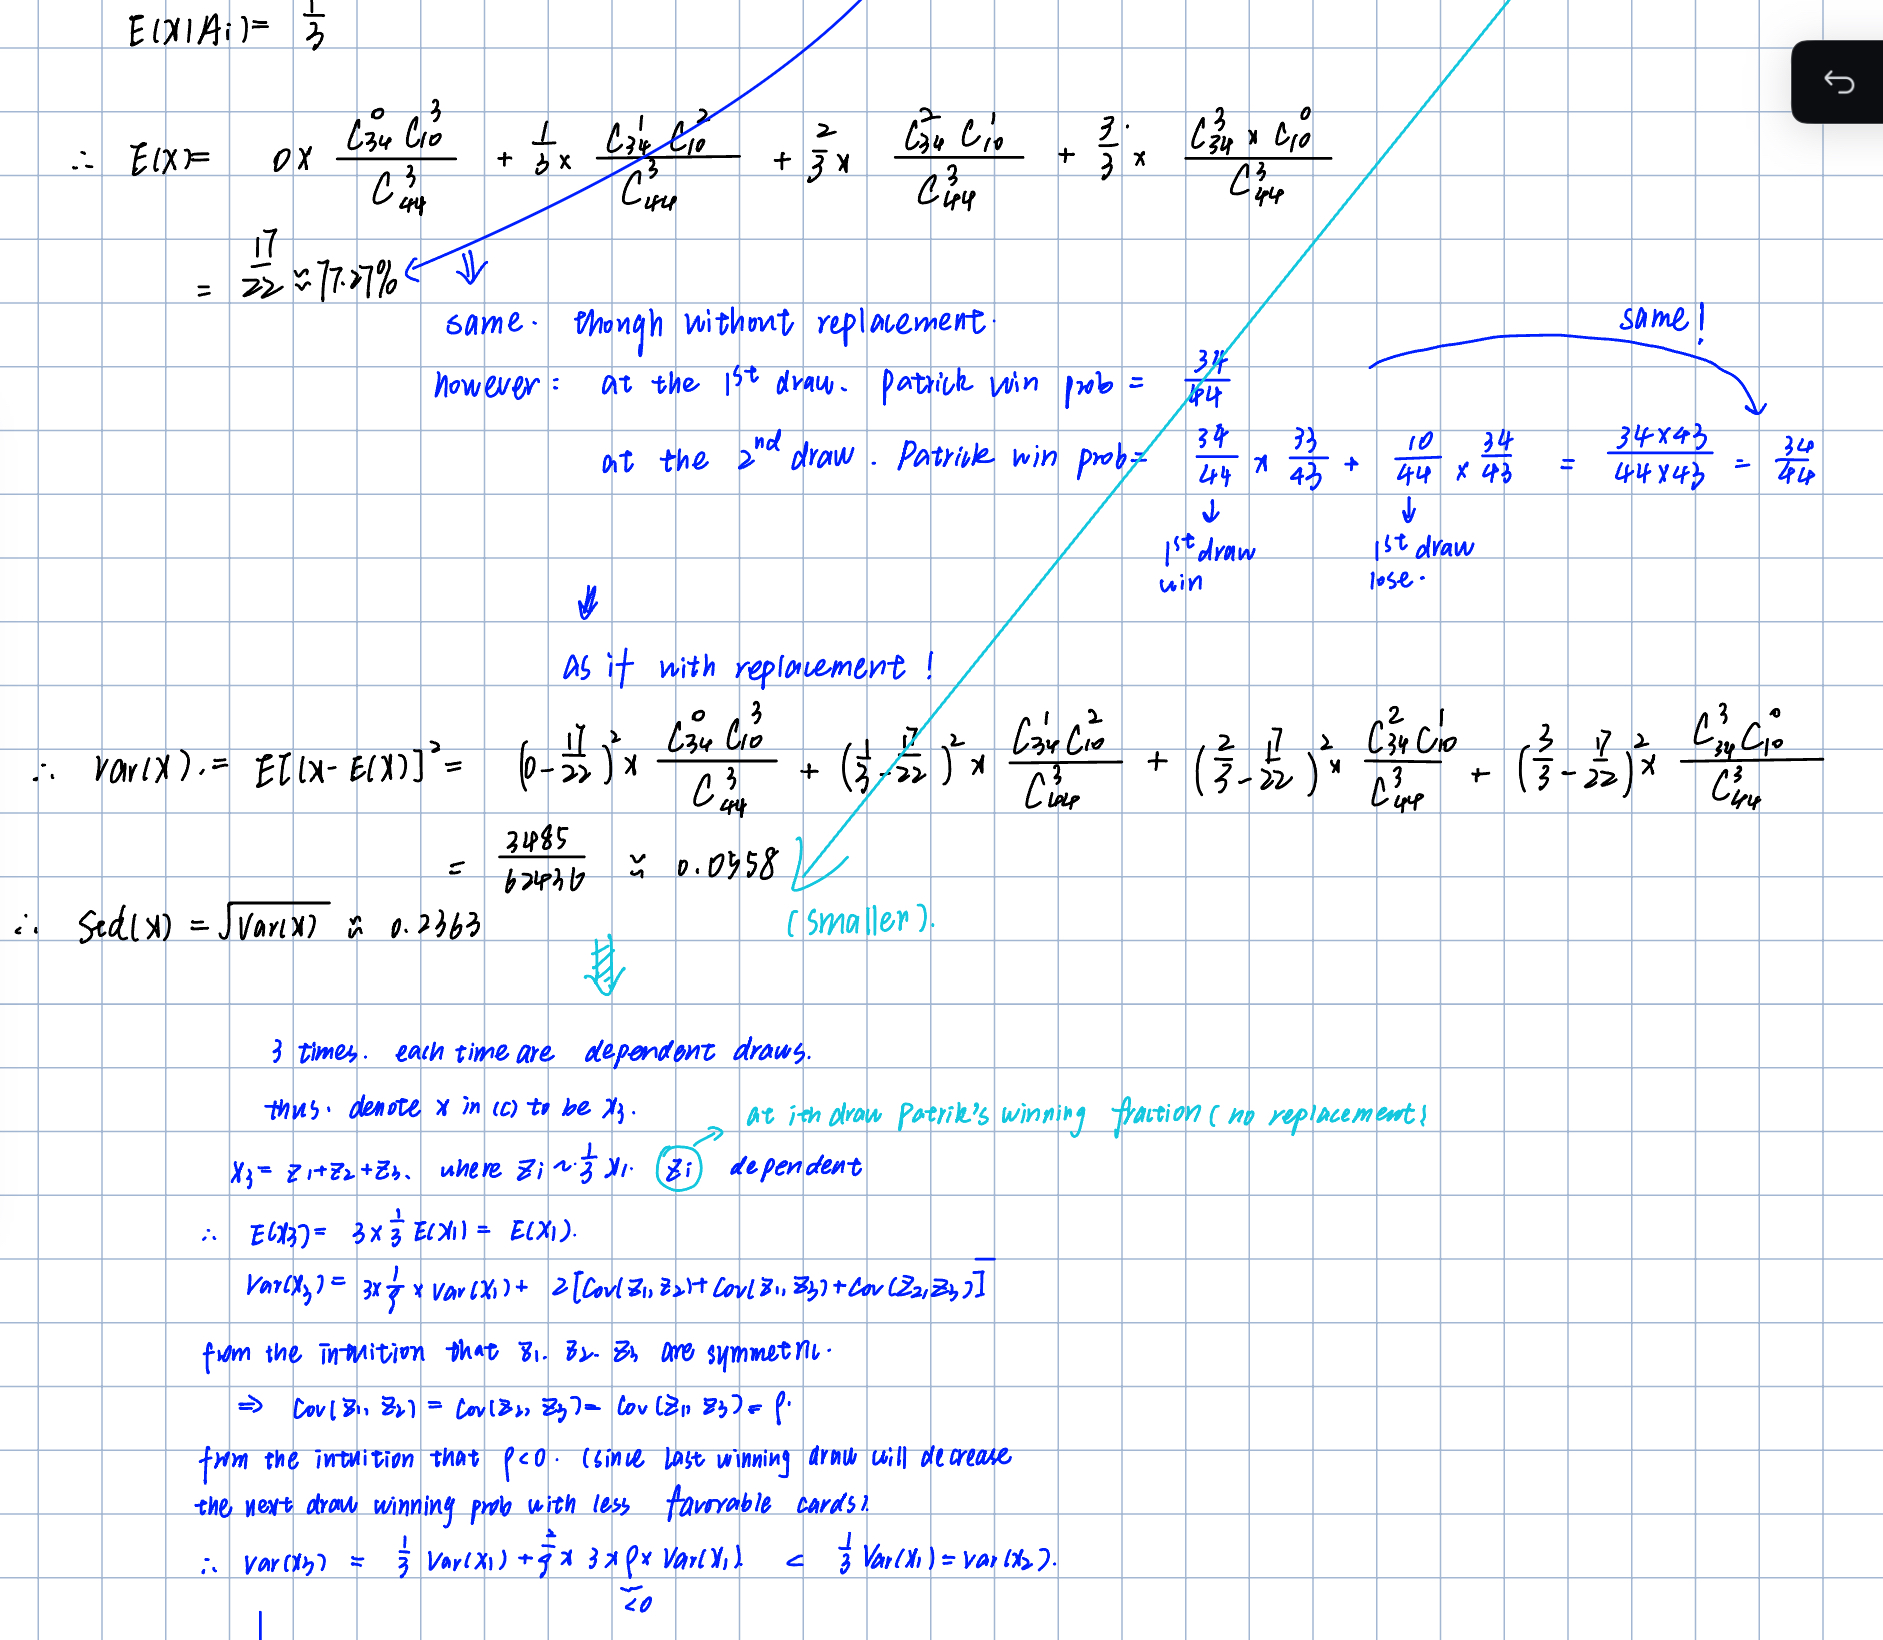 E(X|Ai)= 1/3
∴ E(X)= 0 x C⁰₃₄ C³₁₀ / C³₄₄ + 1/3 x C¹₃₄ C²₁₀ / C³₄₄ + 2/3 x C²₃₄ C¹₁₀ / C³₄₄ + 3/3 x C³₃₄ x C⁰₁₀ / C³₄₄
= 17/22 ≈ 77.27%
same. though without replacement.
same!
however: at the 1st draw. Patrick win prob = 34/44
at the 2nd draw. Patrick win prob= 34/44 x 33/43 + 10/44 x 34/43 = 34x43/44x43 = 34/44
1st draw win
1st draw lose.
as if with replacement!
∴ Var(X).= E[(X-E(X)]² = (0-17/22)² x C⁰₃₄ C³₁₀ / C³₄₄ + (1/3-17/22)² x C¹₃₄ C²₁₀ / C³₄₄ + (2/3-17/22)² x C²₃₄ C¹₁₀ / C³₄₄ + (3/3-17/22)² x C³₃₄ C⁰₁₀ / C³₄₄
= 3485/62436 ≈ 0.0558
(smaller).
∴ Std(X) = √Var(X) ≈ 0.2363
3 times. each time are dependent draws.
thus. denote X in (c) to be X₃.
at ith draw Patrik's winning fraction (no replacement)
X₃= Z₁+Z₂+Z₃. where Zi ~ 1/3 X₁. Zi dependent
∴ E(X₃)= 3x 1/3 E(X₁) = E(X₁).
Var(X₃)= 3x 1/9 x Var(X₁)+ 2[Cov(Z₁,Z₂)+Cov(Z₁,Z₃)+Cov(Z₂,Z₃)]
from the intuition that Z₁. Z₂. Z₃ are symmetric.
⇒ Cov(Z₁, Z₂) = Cov(Z₂, Z₃)= Cov(Z₁, Z₃)= ρ.
from the intuition that ρ<0. (since last winning draw will decrease
the next draw winning prob with less favorable cards).
∴ Var(X₃) = 1/3 Var(X₁) + 2/9 x 3 x ρ x Var(X₁) < 1/3 Var(X₁)=Var(X₂).
<0